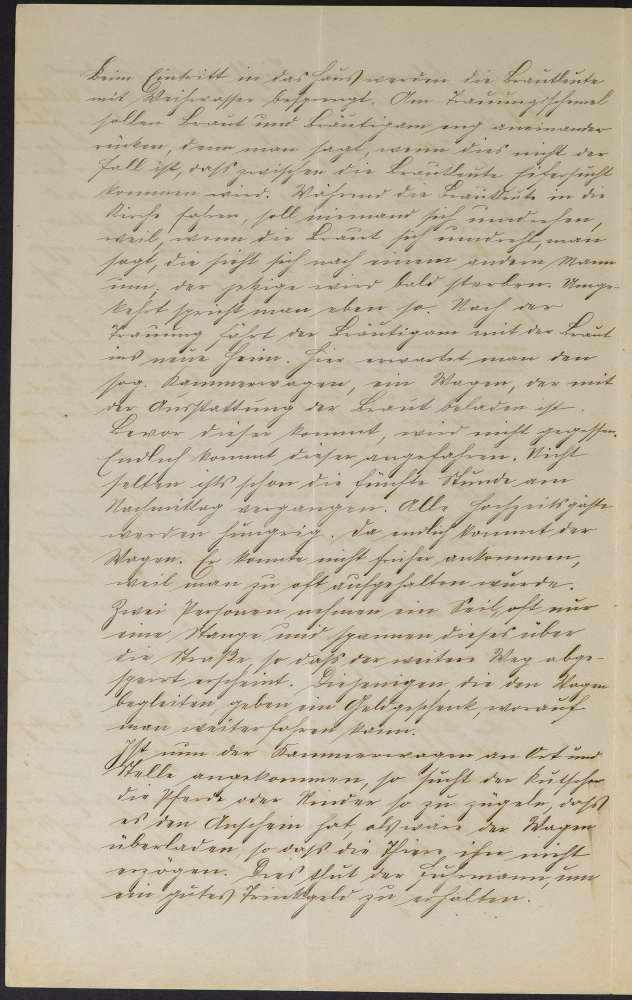 Beim Eintritt in das Haus werden die Brautleute
mit Weihwasser besprengt. Am Trauungsschemel
sollen Braut und Bräutigam eng aneinander
rücken, denn man sagt, wenn dies nicht der
Fall ist, dass zwischen die Brautleute Eifersucht
kommen wird. Während die Brautleute in die
Kirche fahren, soll niemand sich umdrehen,
weil, wenn die Braut sich umdreht, man
sagt, die sieht sich nach einem andern Mann
um; der jetzige wird bald sterben. Umge-
kehrt spricht man eben so. Nach der
Trauung fährt der Bräutigam mit der Braut
ins neue Heim. Hier erwartet man den
sog. Kammerwagen, ein Wagen, der mit
der Ausstattung der Braut beladen ist.
Bevor dieser kommt, wird nicht gegessen.
Endlich kommt dieser angefahren. Nicht
selten ists schon die fünfte Stunde am
Nachmittag vergangen. Alle Hochzeitsgäste
werden hungrig. Da endlich kommt der
Wagen. Er konnte nicht früher ankommen,
weil man zu oft aufgehalten wurde.
Zwei Personen nehmen ein Seil, oft nur
eine Stange und spannen dieses über
die Straße, so dass der weitere Weg abge-
sperrt erscheint. Diejenigen, die den Wagen
begleiten, geben ein Geldgeschenk, worauf
man weiterfahren kann.
Ist nun der Kammerwagen an Ort und
Stelle angekommen, so sucht der Kutscher
die Pferde oder Rinder so zu zügeln, dass
es den Anschein hat, als wäre der Wagen
überladen, so dass die Thiere ihn nicht
erzögen. Dies thut der Fuhrmann, um
ein gutes Trinkgeld zu erhalten.